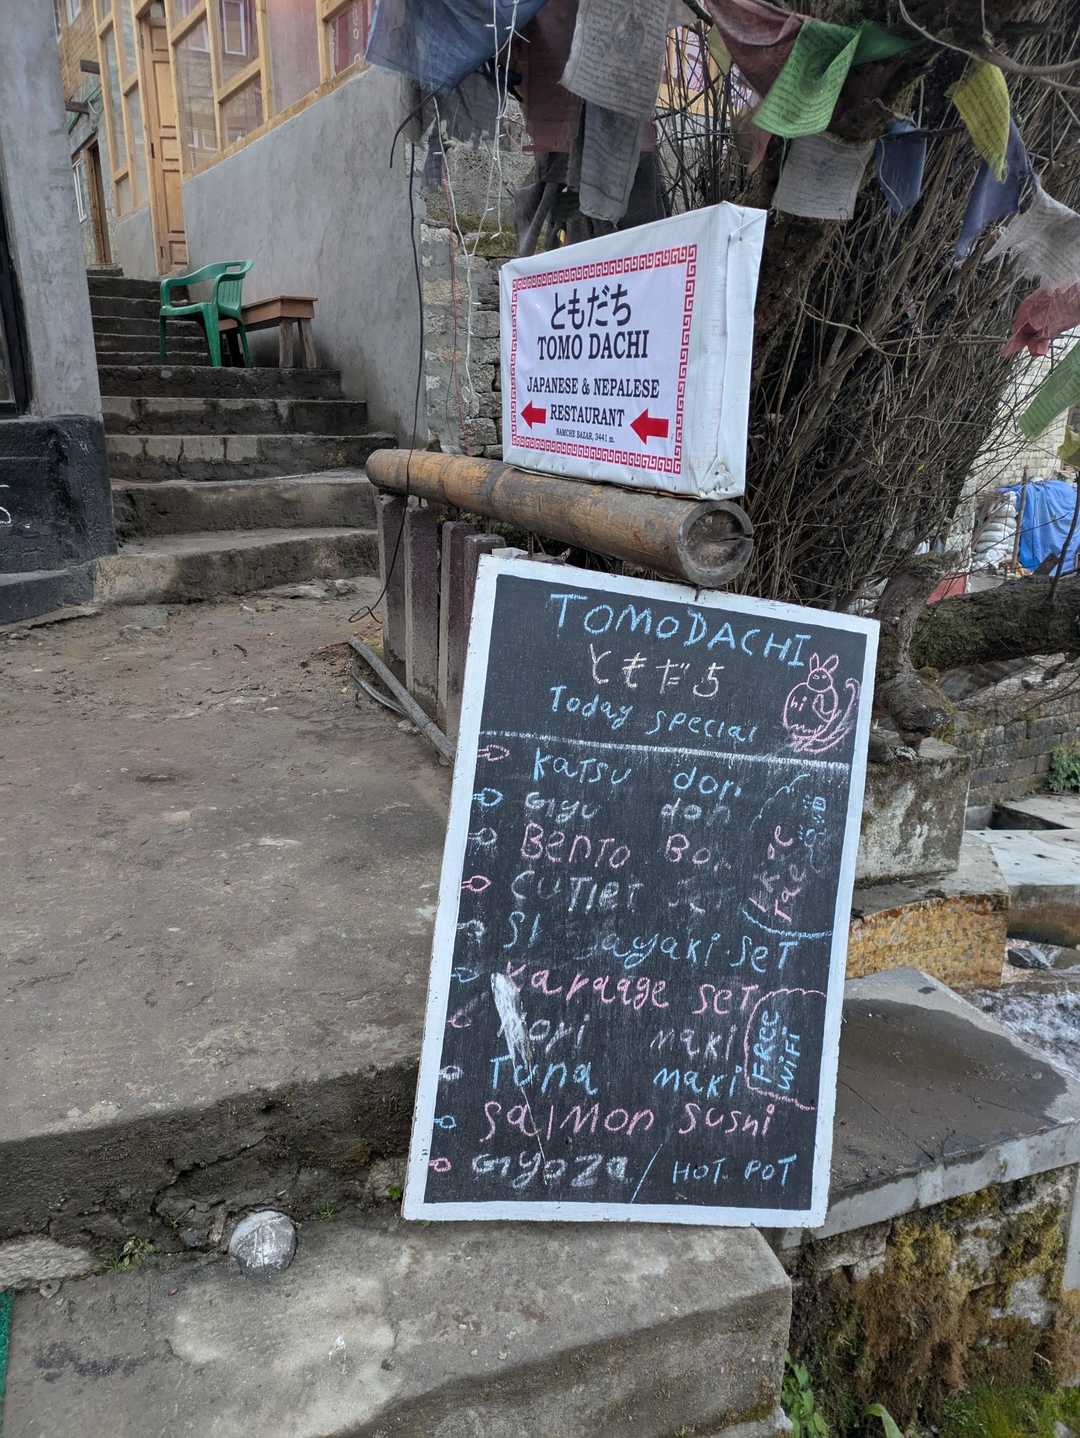 ともだち
TOMO DACHI
JAPANESE & NEPALESE
RESTAURANT
NAMCHE BAZAR, 3441 m.
TOMODACHI
ともだち
Today special
hi
Katsu don
Gyu don
Bento
Cutlet
yaki set
Karaage set
maki
Tuna maki
Salmon sushi
Gyoza / HOT. POT
FREE
WiFi